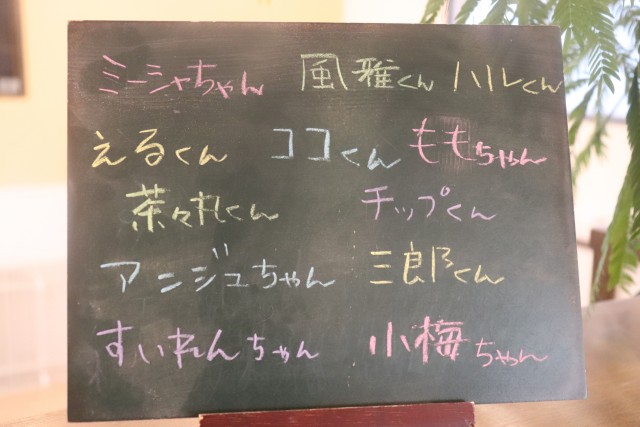 ミーシャちゃん 風雅くん ハルくん
えるくん ココくん ももちゃん
茶々丸くん チップくん
アンジュちゃん 三郎くん
すいれんちゃん 小梅ちゃん